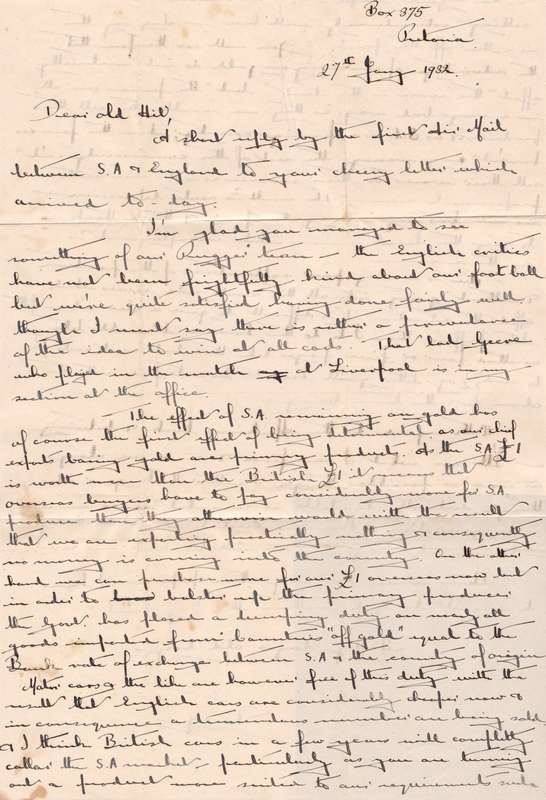 Box 375
Pretoria
27th Jany 1932.
Dear old Hil,
A short reply by the first Air Mail
between S.A & England to your cheery letter which
arrived to-day.
I'm glad you managed to see
something of our Rugger team – the English critics
have not been frightfully kind about our football
but we're quite satisfied having done fairly well
though I must say there is rather a prevalence
of the idea to win at all costs. That lad Geere
who played in the match at Liverpool is in my
section at the office.
The effect of S.A. remaining on gold has
of course the first effect of being detrimental as our chief
exports barring gold are primary products. As the SA £1
is worth more than the British £1 it means that
oversea buyers have to pay considerably more for S.A.
produce than they otherwise would with the result
that we are exporting practically nothing & consequently
no money is coming into the country. On the other
hand we can purchase more for our £1 overseas now but
in order to bolster up the primary producer
the Govt has placed a dumping duty on nearly all
goods imported from Countries "off gold" equal to the
Bank rate of exchange between S.A & the country of origin
Motor cars & the like are however free of this duty with the
result that English cars are considerably cheaper now &
in consequence a tremendous number are being sold
& I think British cars in a few years will completely
collar the S.A market particularly as you are turning
out a product more suited to our requirements such